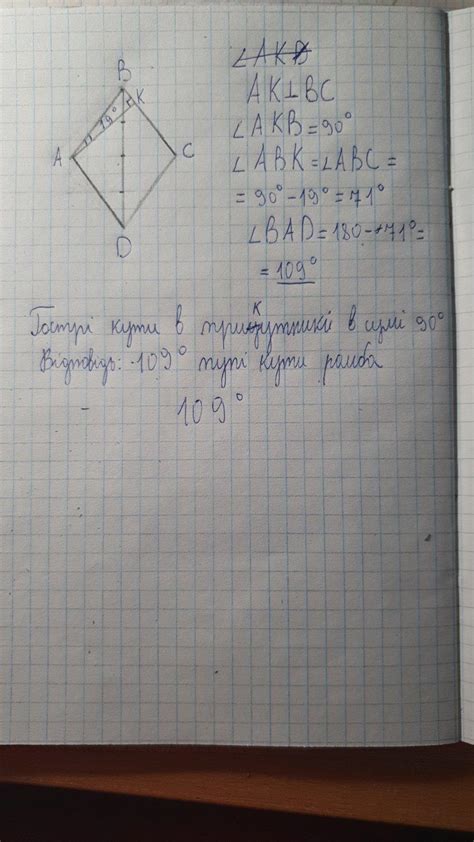 B
K
19°
A
C
D
∠AKB
AK⊥BC
∠AKB=90°
∠ABK=∠ABC=
=90°-19°=71°
∠BAD=180-71°=
=109°
К
Гострі кути в трикутнику в сумі 90°
Відповідь: 109° тупі кути ромба
109°